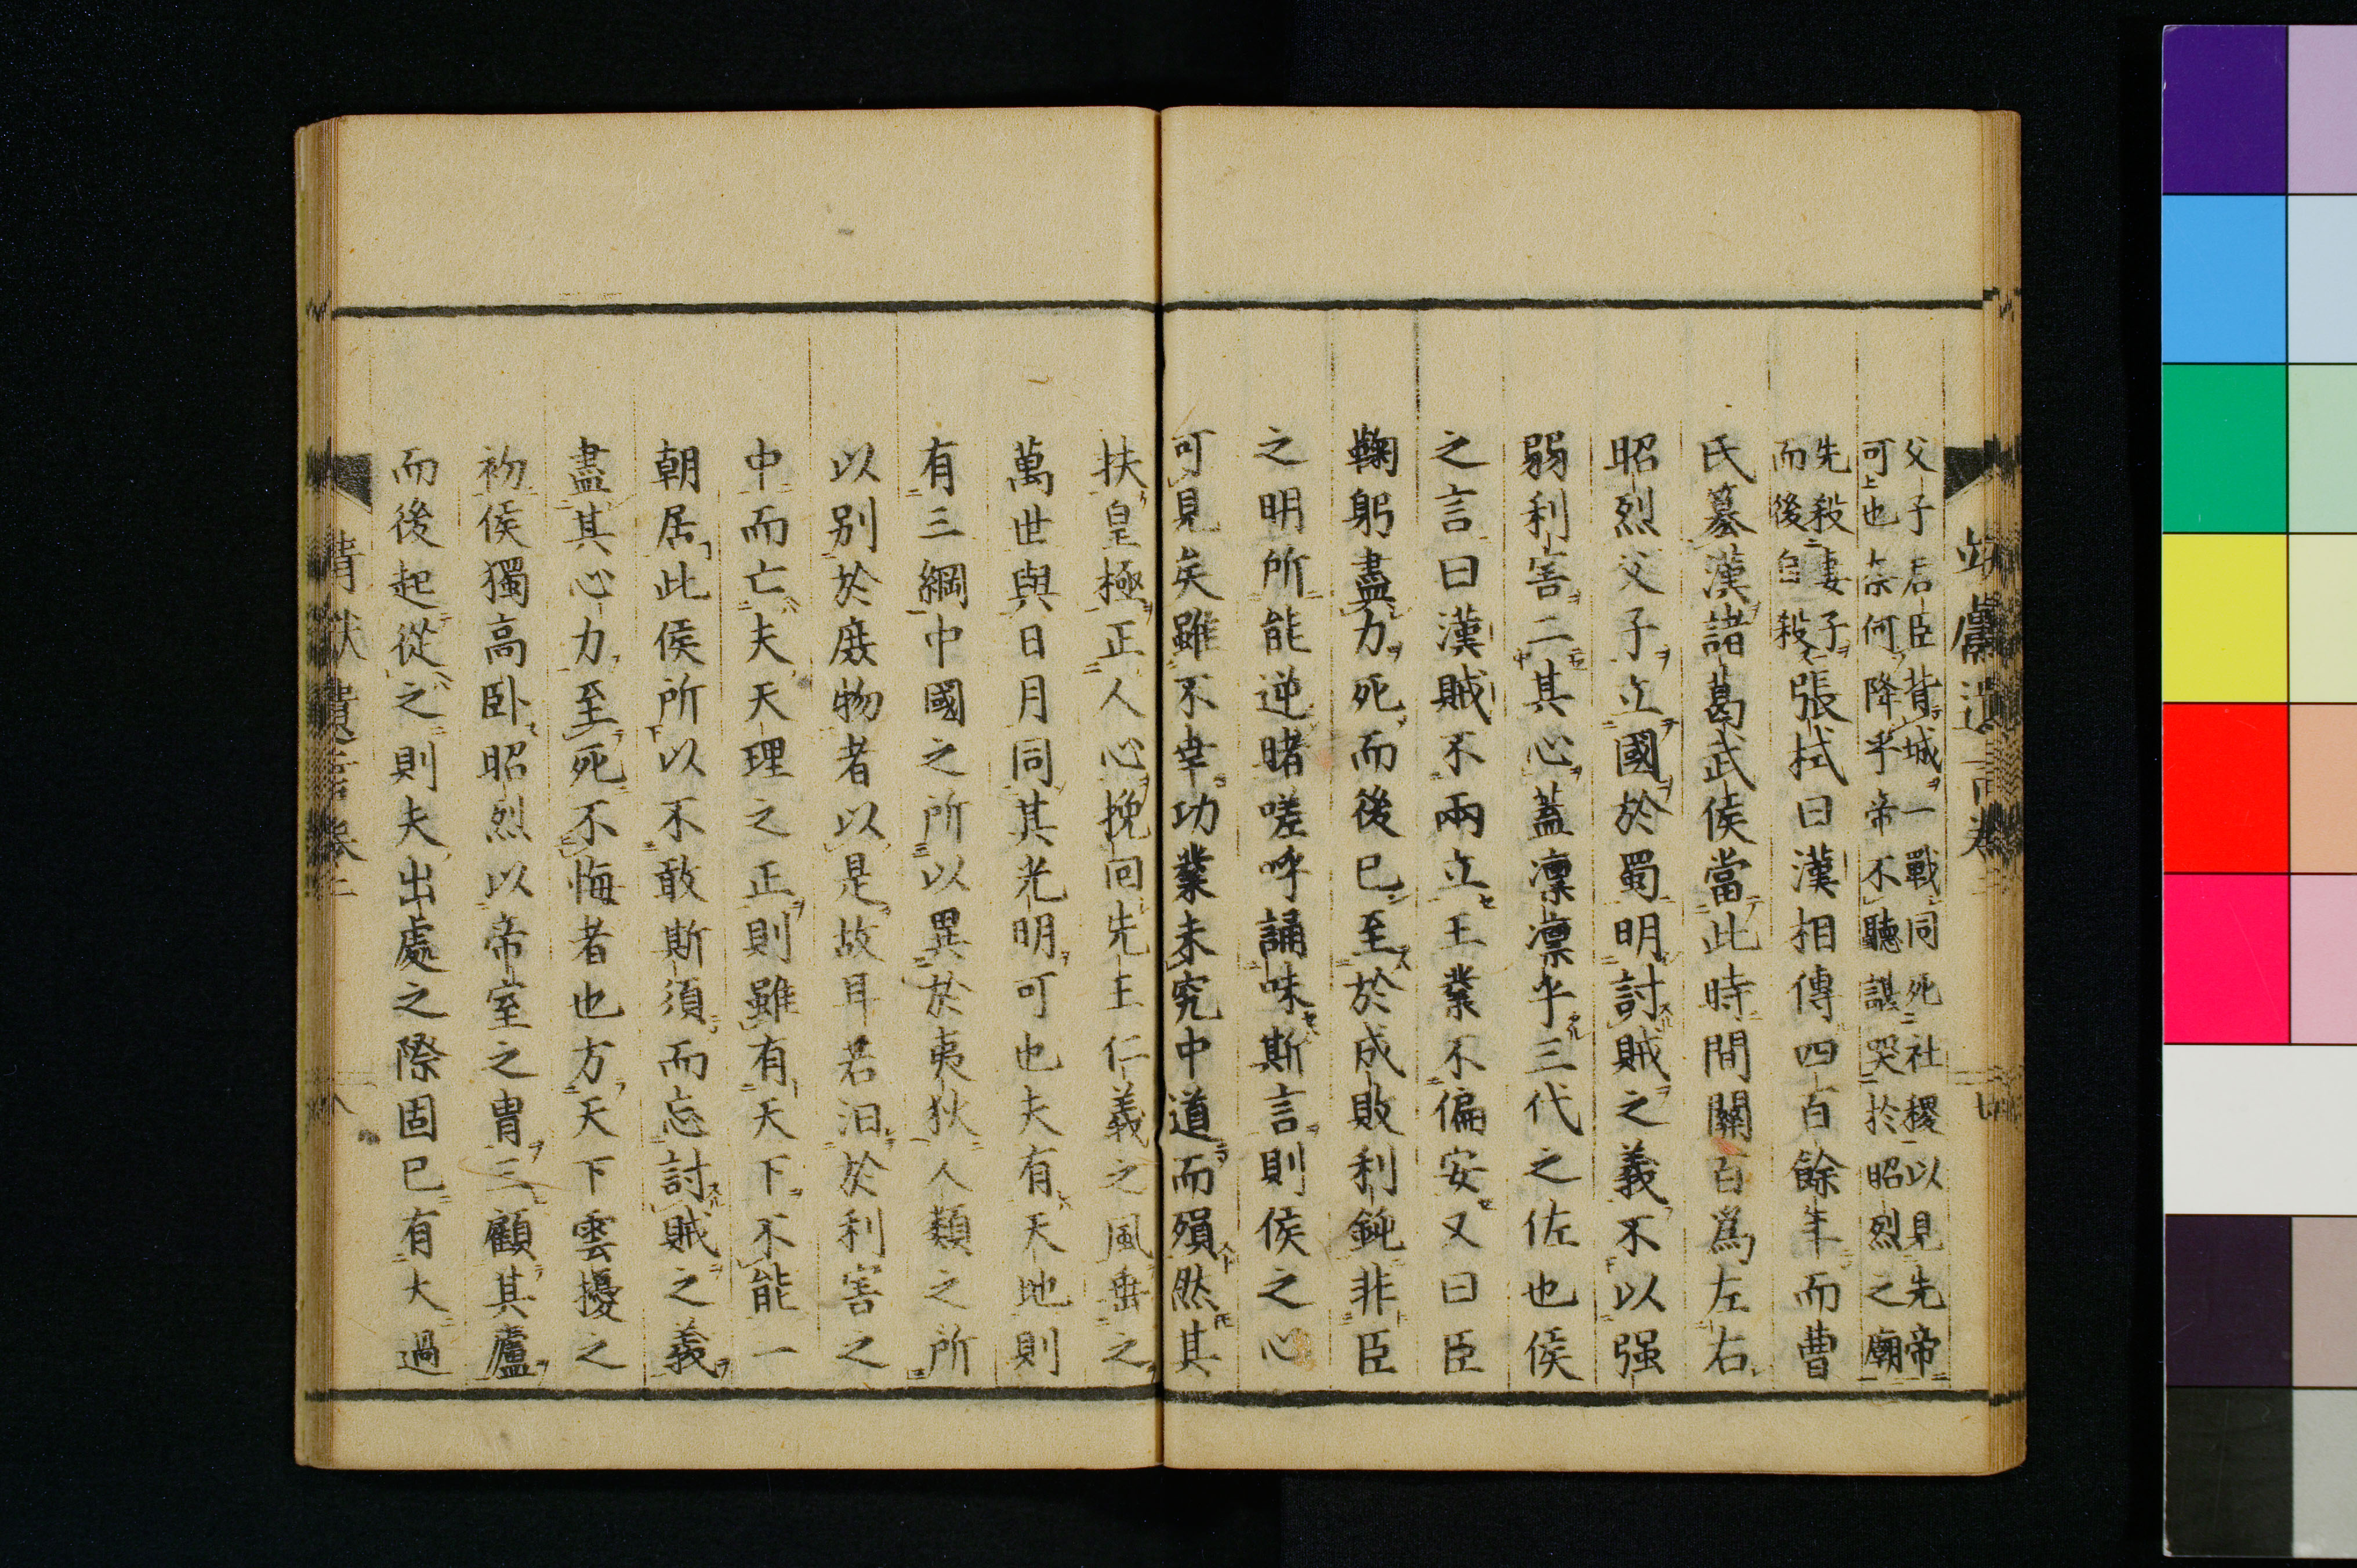 父子君臣背城一戰同死社稷以見先帝
可也奈何降乎帝不聽諶哭於昭烈之廟
先殺妻子
而後自殺
張栻曰漢相傳四百餘年而曹
氏簒漢諸葛武侯當此時間關百爲左右
昭烈父子立國於蜀明討賊之義不以强
弱利害二其心蓋凛凛乎三代之佐也侯
之言曰漢賊不兩立王業不偏安又曰臣
鞠躬盡力死而後已至於成敗利鈍非臣
之明所能逆睹嗟呼誦味斯言則侯之心
可見矣雖不幸功業未究中道而殞然其
扶皇極正人心挽回先王仁義之風垂之
萬世與日月同其光明可也夫有天地則
有三綱中國之所以異於夷狄人類之所
以别於庶物者以是故耳若汨於利害之
中而亡夫天理之正則雖有天下不能一
朝居此侯所以不敢斯須而忘討賊之義
盡其心力至死不悔者也方天下雲擾之
初侯獨高卧昭烈以帝室之胄三顧其廬
而後起從之則夫出處之際固已有大過